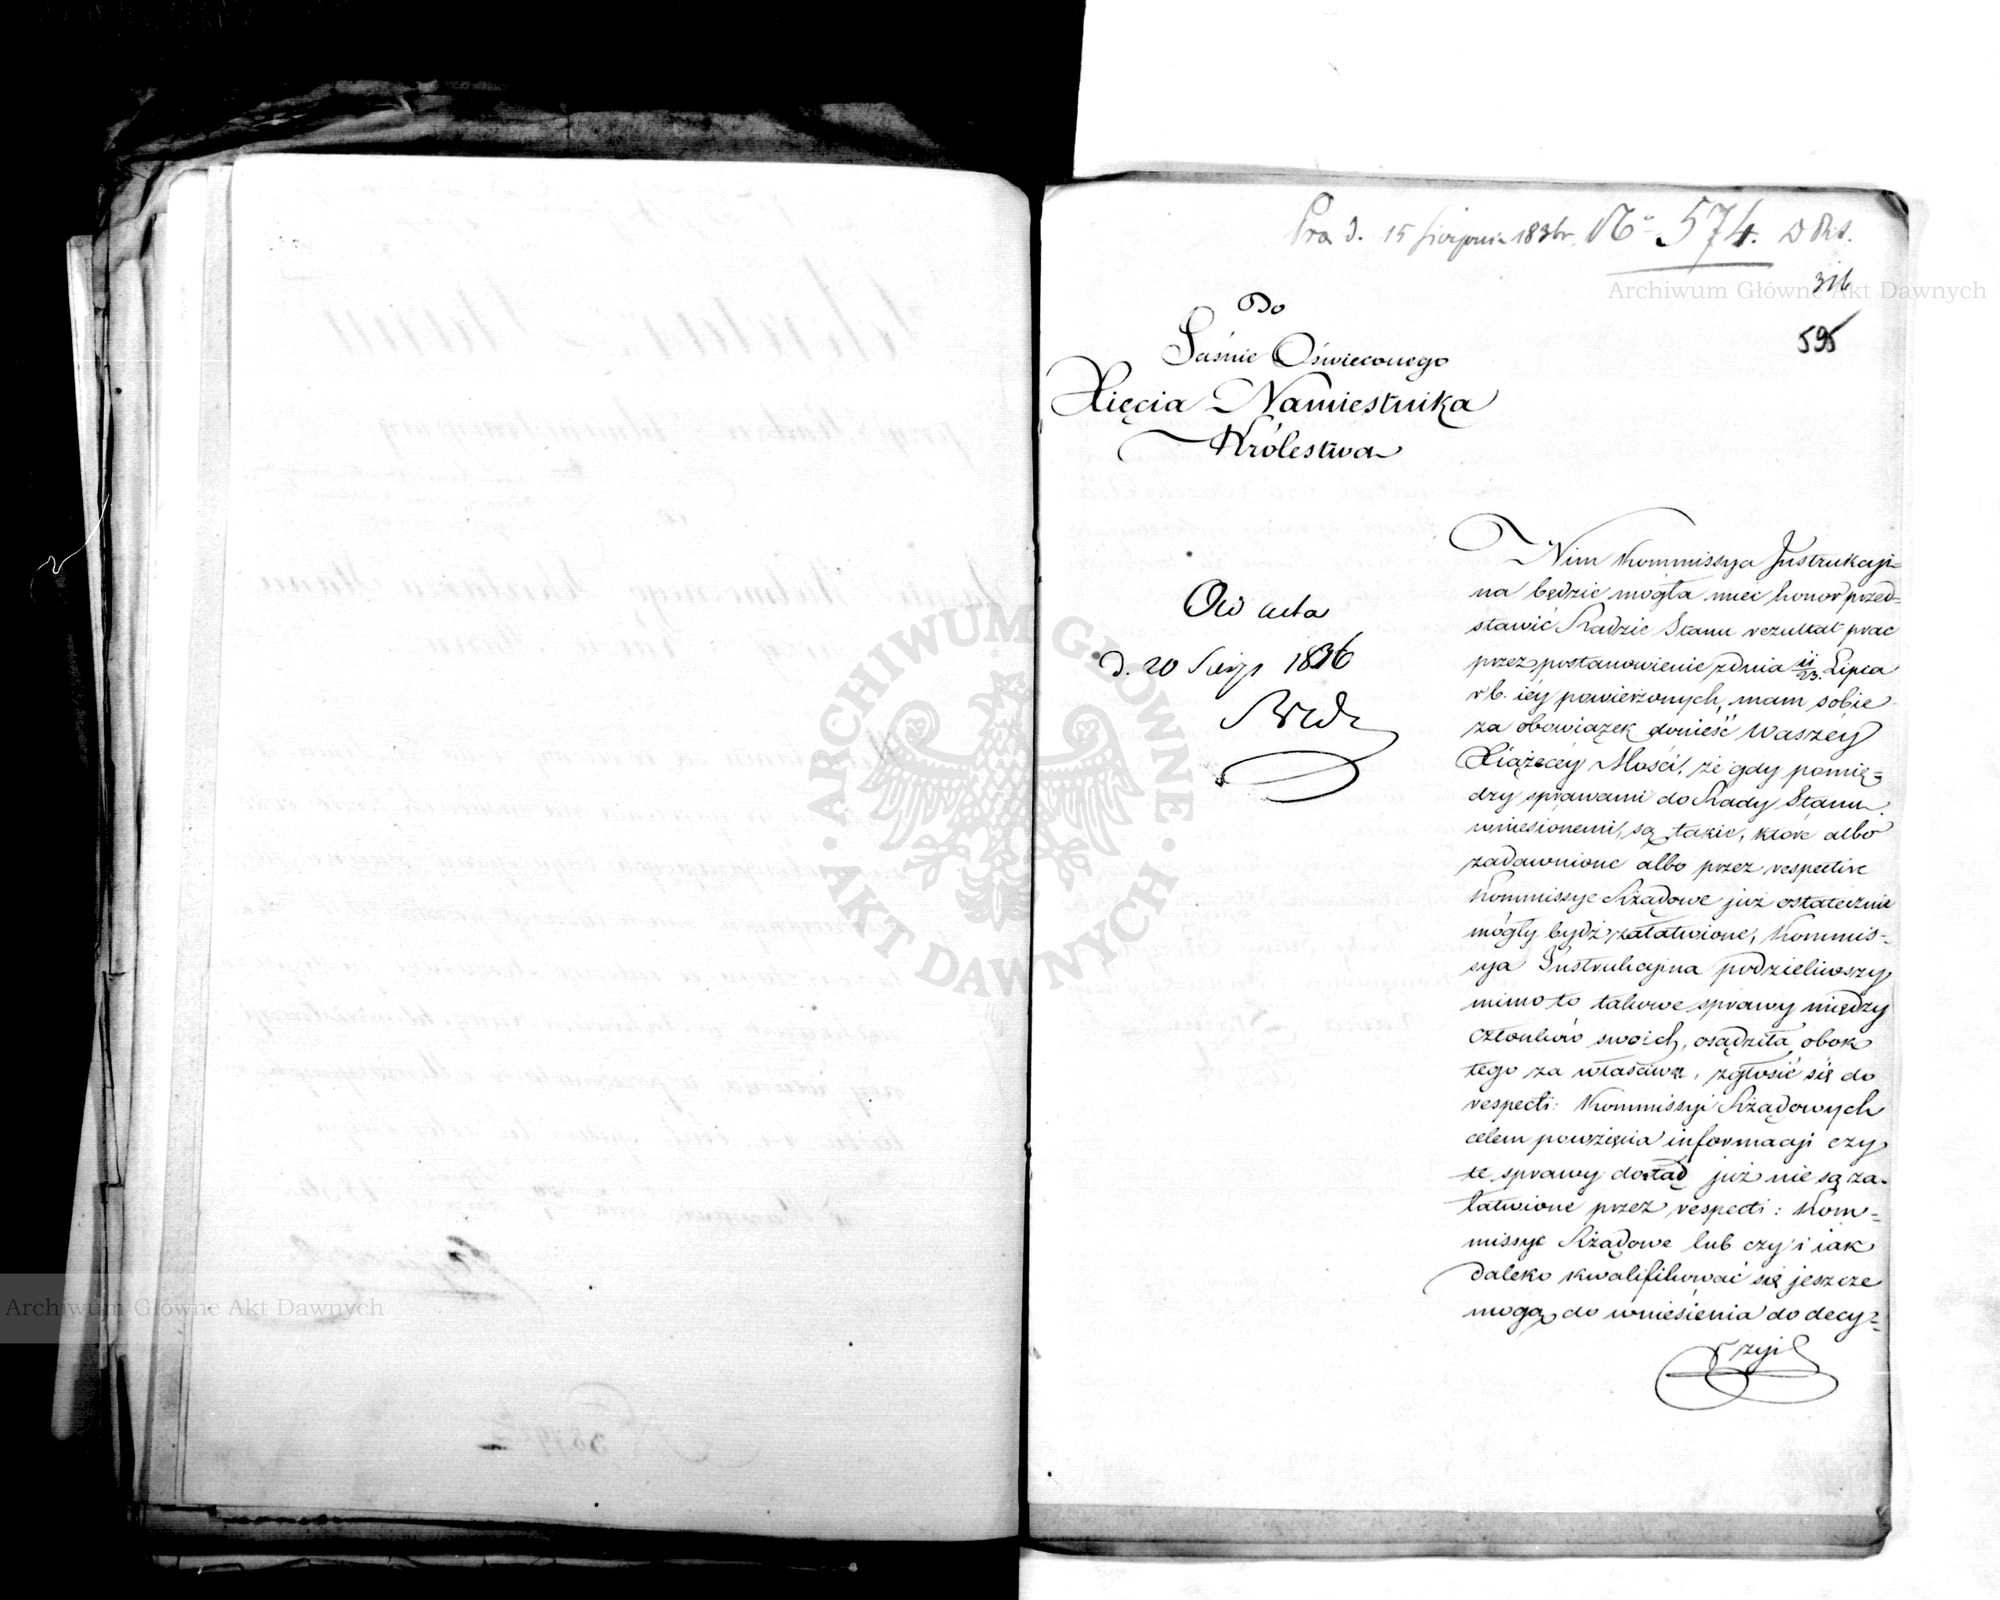 Pra d. 15 Sierpnia 1836 r. No 574. D Rks.
316
595
Do
Jaśnie Oświeconego
Xięcia Namiestnika
Królestwa
Ad acta
d. 20 Sierp 1836
Nim Kommissya Instrukcyi-
na będzie mogła mieć honor przed-
stawić Radzie Stanu rezultat prac
przez postanowienie z dnia 11/23. Lipca
r b. iéy powierzonych, mam sobie
za obowiązek donieść Waszéy
Xiążęcéy Mości, że gdy pomię-
dzy sprawami do Rady Stanu
wniesionemi, są takie, które albo
zadawnione albo przez respective
Kommissye Rządowe już ostatecznie
mogły bydź załatwione, Kommis-
sya Instrukcyjna podzieliwszy
mimo to takowe sprawy między
członków swoich, osądziła obok
tego za właściwe, zgłosić się do
respecti: Kommissyi Rządowych
celem powzięcia informacji czy
te sprawy dotąd już nie są za-
łatwione przez respecti: Kom-
missye Rządowe lub czy i iak
daleko kwalifikować się jeszcze
mogą do wniesienia do decy-
zyi
Archiwum Główne Akt Dawnych
Archiwum Główne Akt Dawnych
ARCHIWUM GŁÓWNE AKT DAWNYCH